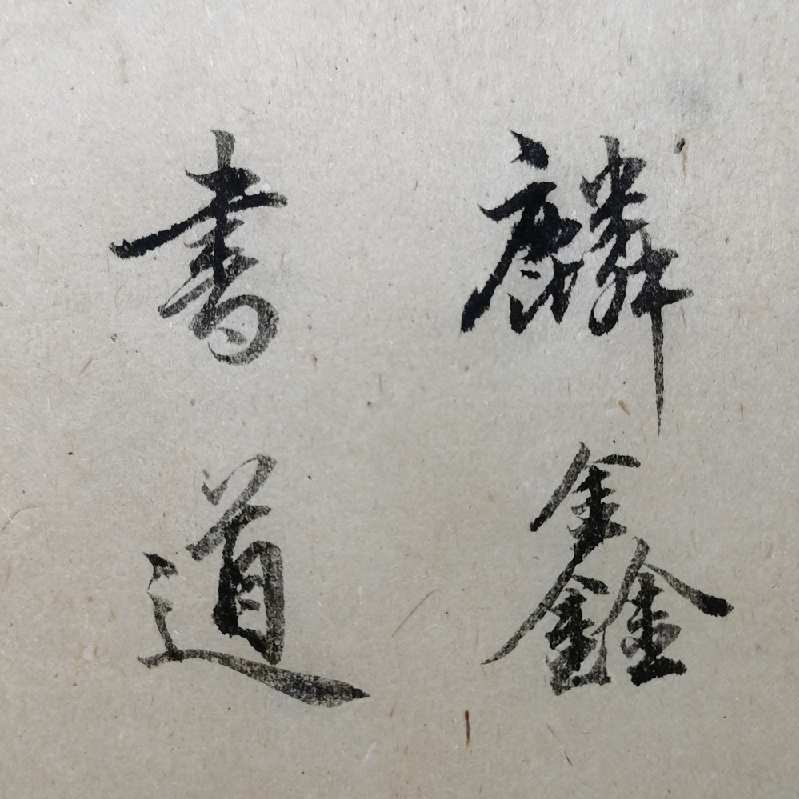 麟鑫
書道